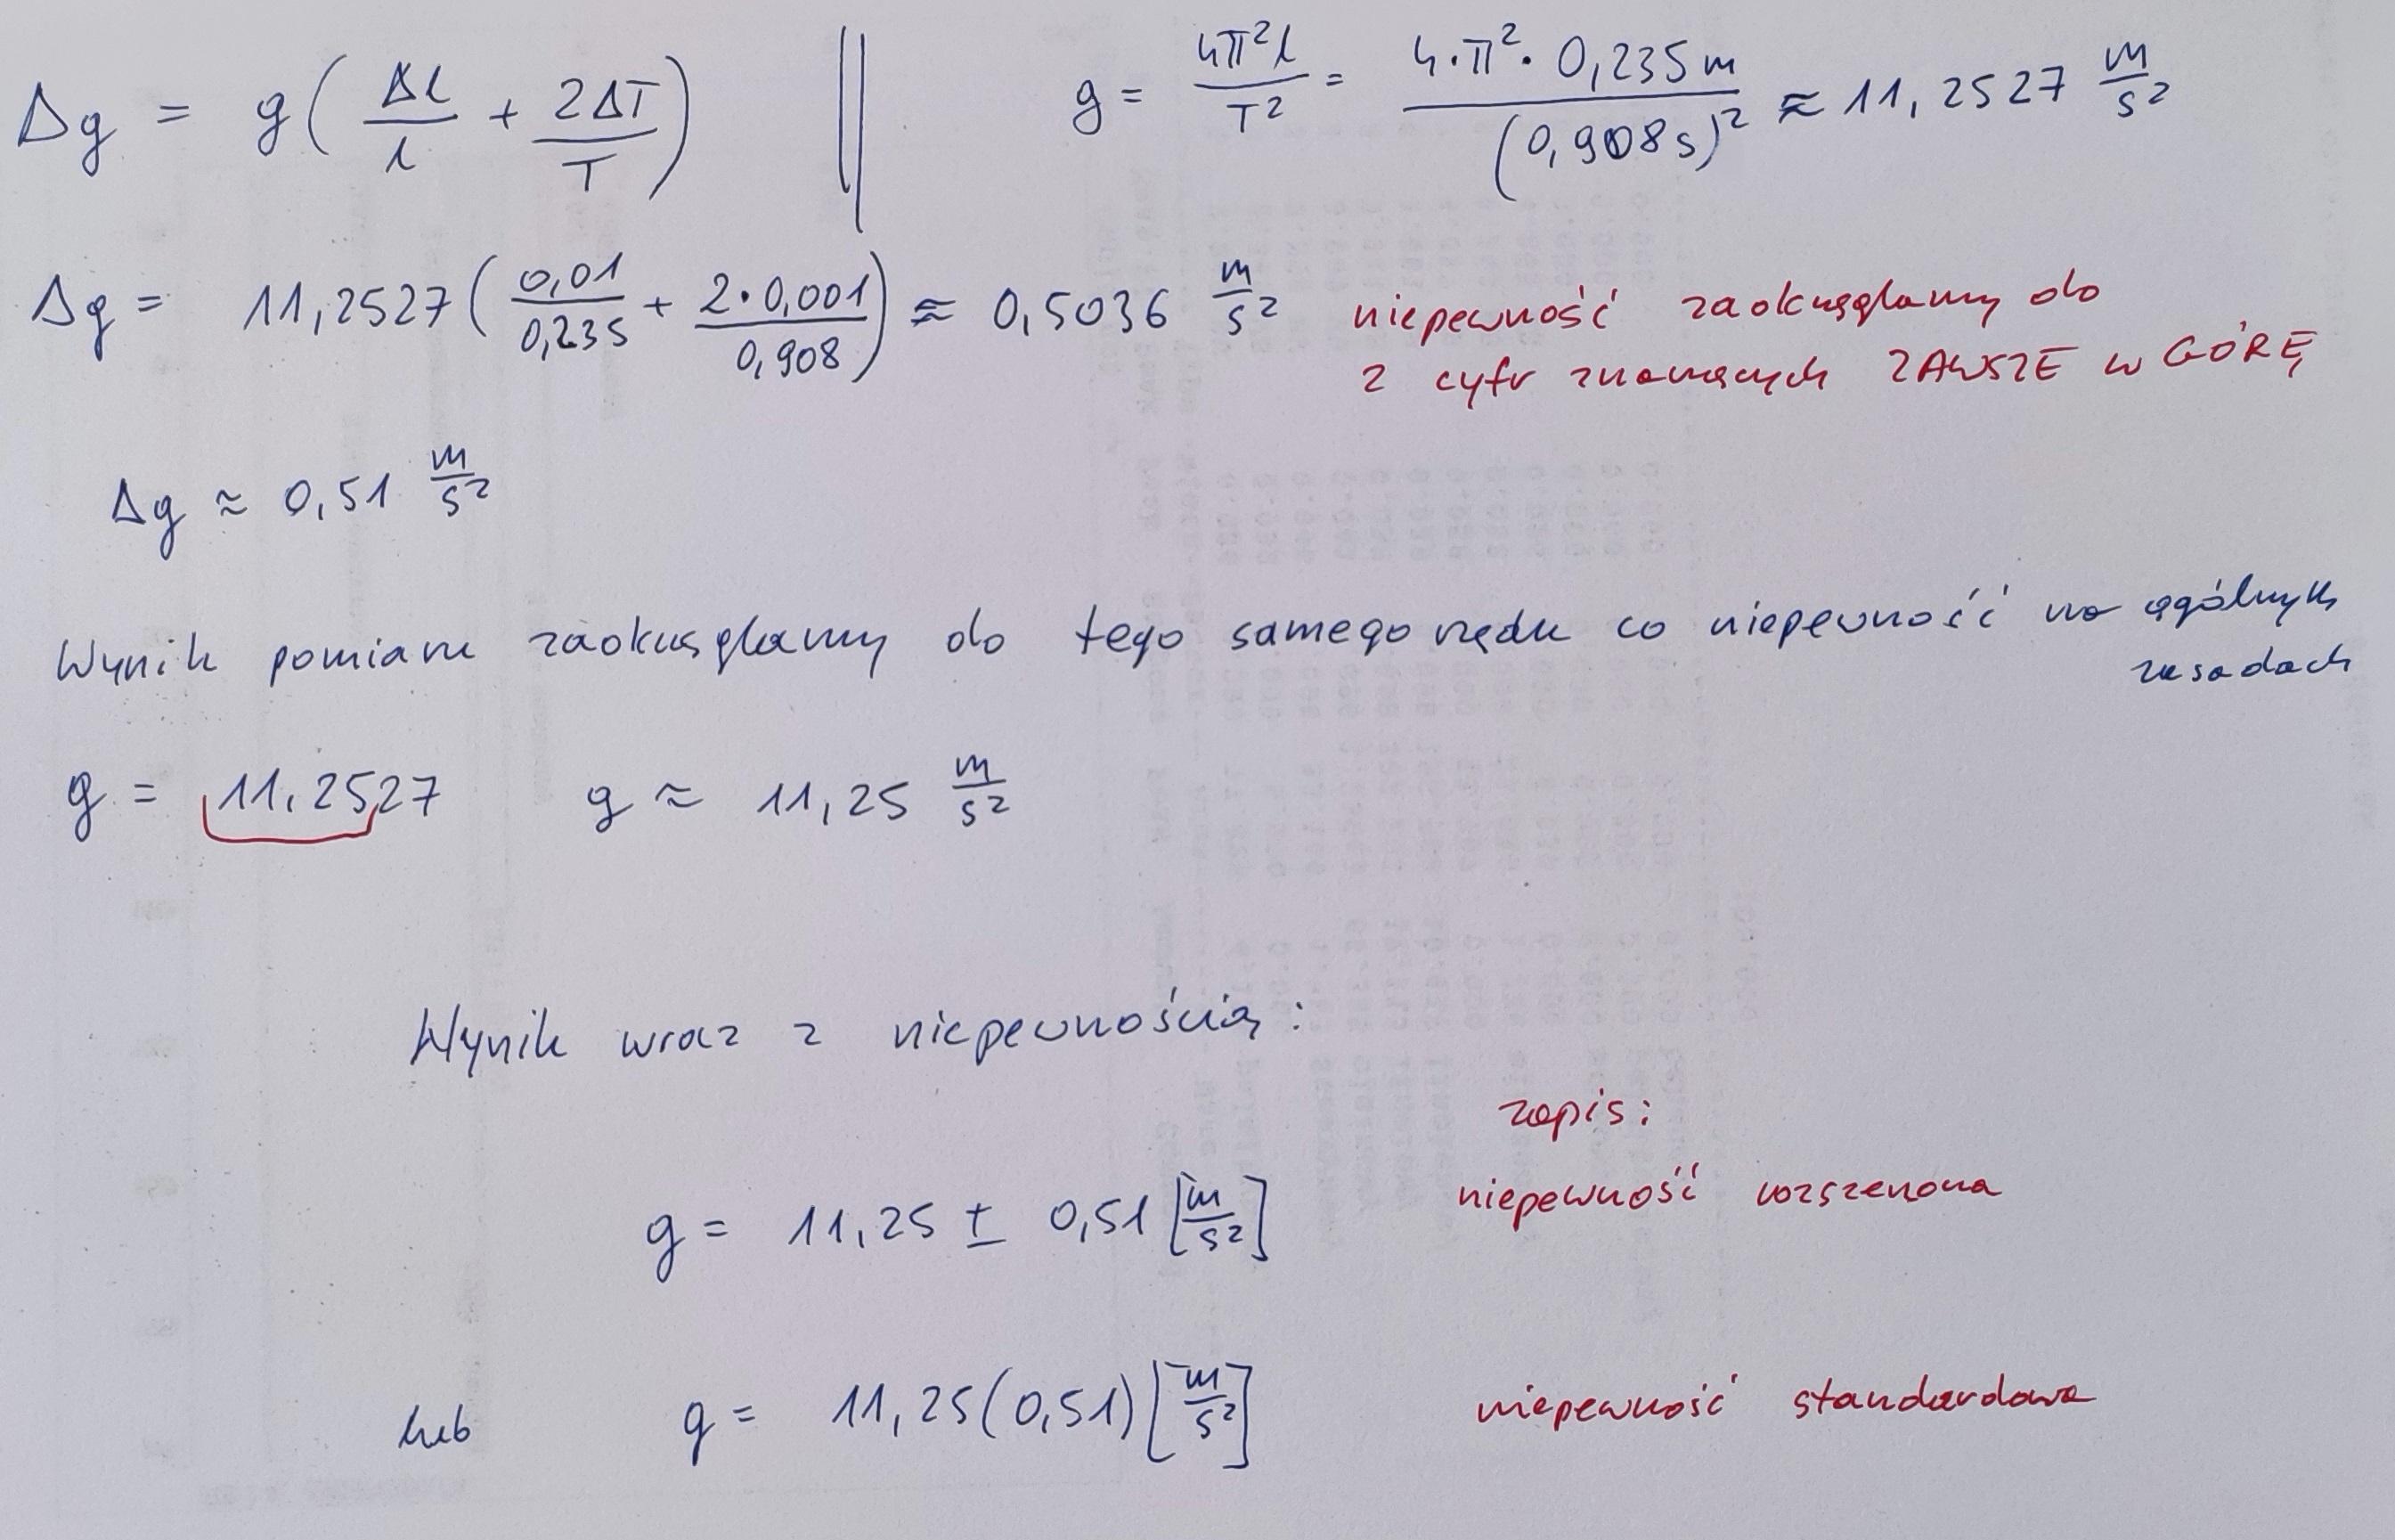 Δg = g(Δl/l + 2ΔT/T) || g = 4π²l/T² = 4·π²·0,235m/(0,908s)² ≈ 11,2527 m/s²
Δg = 11,2527(0,01/0,235 + 2·0,001/0,908) ≈ 0,5036 m/s² niepewność zaokrąglamy do
2 cyfr znaczących ZAWSZE w GÓRĘ
Δg ≈ 0,51 m/s²
Wynik pomiaru zaokrąglamy do tego samego rzędu co niepewność na ogólnych
zasadach
g = 11,2527 g ≈ 11,25 m/s²
Wynik wraz z niepewnością:
zapis:
g = 11,25 ± 0,51 [m/s²] niepewność rozszerzona
lub g = 11,25(0,51) [m/s²] niepewność standardowa